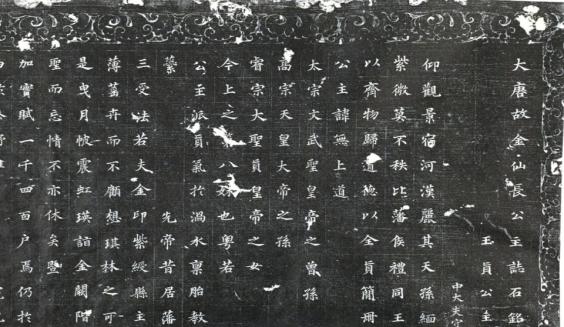 大唐故金仙長公主誌石銘
玉真公主
中大夫守
仰觀景宿河漢麗其天孫緬
紫微莫不秩比藩侯禮同王
以齊物歸道德以全真簡冊
公主諱無上道
太宗文武聖皇帝之曾孫
高宗天皇大帝之孫
睿宗大聖真皇帝之女
今上之八妹也粵若
公主派真氣於渦水稟胎教
蘂 先帝昔居藩
三受法若夫金印紫綬縣主
薄蕣卉而不顧想琪林之可
是曳月帔震虹瑛詣金闕階
聖而忘情不亦休矣暨
加實賦一千四百户焉仍於